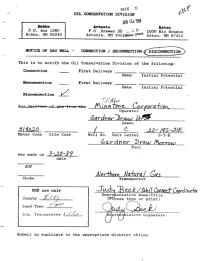 OIL CONSERVATION DIVISION
Hobbs
P.O. Box 1980
Hobbs, NM 88240
Artesia
P.O. Drawer DD
Artesia, NM
Aztec
1000 Rio Brazos
Aztec, NM 87410
NOTICE OF GAS WELL - CONNECTION / RECONNECTION / DISCONNECTION
This is to notify the Oil Conservation Division of the following:
Connection First Delivery
Date Initial Potential
Reconnection First Delivery
Date Initial Potential
Disconnection ✓
Minntone Corporation
Operator
Lease
Meter Code Site Code Well No. Unit Letter S-T-R
Gardner Draw Morrow
Pool
was made on 3-28-89
date
AOF
Choke
Northern Natural Gas
Transporter
OCD use only
County
Land Type
Liq. Transporter
Judy Beck / Well Connect Coordinator
Representative Name/Title
(Please type or print)
Judy Beck
Representative Signature
Submit in duplicate to the appropriate district office.